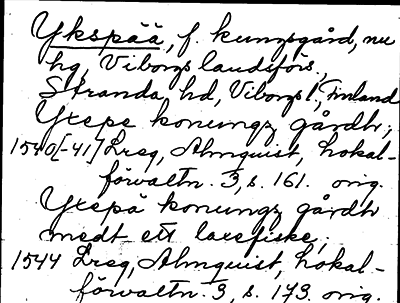 Ykspää, f. kungsgård, nu
hg, Viborgs landsförs.,
Stranda hd, Viborgs l., Finland
Yxepe konungz gårdh;
1540[-41] Lreg, Almquist, Lokal-
förvaltn. 3, s. 161. orig.
Yxepä konungz gårdh
medt ett laxefiske;
1544 Lreg, Almquist, Lokal-
förvaltn. 3, s. 193. orig.